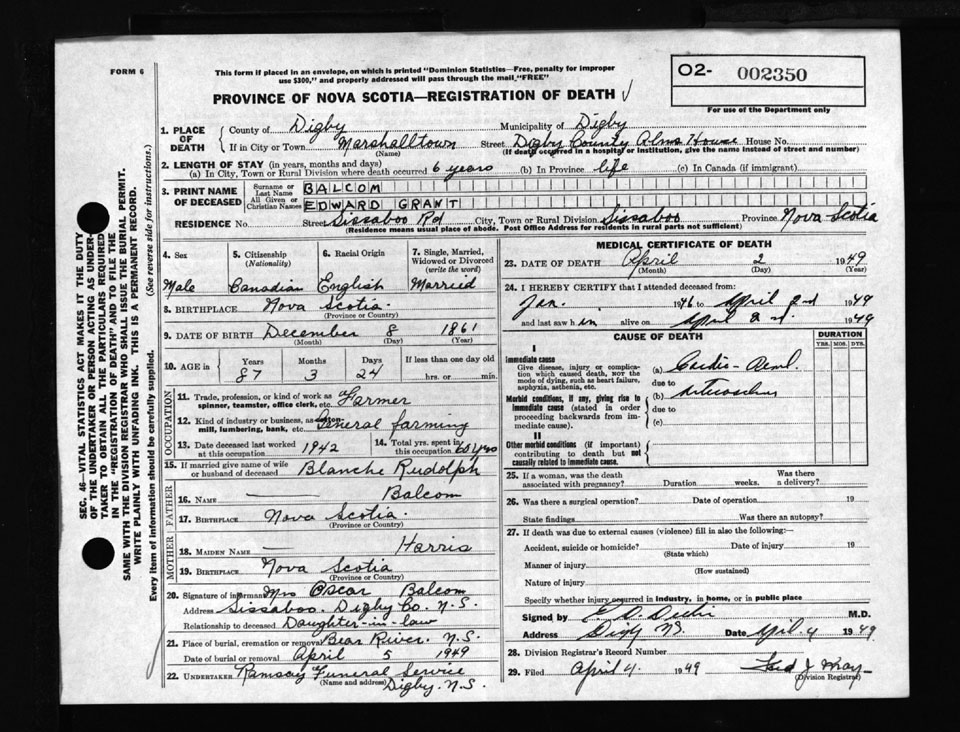 FORM 6
This form if placed in an envelope, on which is printed "Dominion Statistics—Free, penalty for improper
use $300," and properly addressed will pass through the mail, "FREE"
PROVINCE OF NOVA SCOTIA—REGISTRATION OF DEATH
O2- 002350
For use of the Department only
1. PLACE OF DEATH
County of Digby Municipality of Digby
If in City or Town Marshalltown Street Digby County Alms House House No.
(Name) (If death occurred in a hospital or institution, give the name instead of street and number)
2. LENGTH OF STAY (in years, months and days)
(a) In City, Town or Rural Division where death occurred 6 years (b) In Province life (c) In Canada (if immigrant)
3. PRINT NAME OF DECEASED
Surname or Last Name BALCOM
All Given or Christian Names EDWARD GRANT
RESIDENCE No. Street Sissaboo Rd City, Town or Rural Division Sissaboo Province Nova Scotia
(Residence means usual place of abode. Post Office Address for residents in rural parts not sufficient)
4. Sex 5. Citizenship (Nationality) 6. Racial Origin 7. Single, Married, Widowed or Divorced (write the word)
Male Canadian English Married
8. BIRTHPLACE Nova Scotia
(Province or Country)
9. DATE OF BIRTH December 8 1861
(Month) (Day) (Year)
10. AGE in Years Months Days If less than one day old
87 3 24 hrs. or min.
OCCUPATION
11. Trade, profession, or kind of work as spinner, teamster, office clerk, etc. Farmer
12. Kind of industry or business, as cotton mill, lumbering, bank, etc. General farming
13. Date deceased last worked at this occupation 1942 14. Total yrs. spent in this occupation 60 yrs
15. If married give name of wife or husband of deceased Blanche Rudolph
FATHER
16. NAME — Balcom
17. BIRTHPLACE Nova Scotia
(Province or Country)
MOTHER
18. MAIDEN NAME — Harris
19. BIRTHPLACE Nova Scotia
(Province or Country)
20. Signature of informant Mrs Oscar Balcom
Address Sissaboo. Digby Co. N.S.
Relationship to deceased Daughter-in-law
21. Place of burial, cremation or removal Bear River. N.S.
Date of burial or removal April 5 1949
22. UNDERTAKER Ramsay Funeral Service
(Name and address) Digby. N.S.
MEDICAL CERTIFICATE OF DEATH
23. DATE OF DEATH April 2 1949
(Month) (Day) (Year)
24. I HEREBY CERTIFY that I attended deceased from:
Jan. 1946 to April 2nd 1949
and last saw him alive on April 2nd. 1949
CAUSE OF DEATH DURATION
YRS. MOS. DYS.
I
Immediate cause
Give disease, injury or complication which caused death, NOT the mode of dying, such as heart failure, asphyxia, asthenia, etc.
(a) Cardio-Renl
due to
Morbid conditions, if any, giving rise to immediate cause (stated in order proceeding backwards from immediate cause).
(b)
due to
(c)
II
Other morbid conditions (if important) contributing to death but not causally related to immediate cause.
25. If a woman, was the death associated with pregnancy? Duration weeks. Was there a delivery?
26. Was there a surgical operation? Date of operation 19
State findings Was there an autopsy?
27. If death was due to external causes (violence) fill in also the following:—
Accident, suicide or homicide? Date of injury 19
(State which)
Manner of injury
(How sustained)
Nature of injury
Specify whether injury occurred in industry, in home, or in public place
Signed by M.D.
Address Digby NS. Date April 4 1949
28. Division Registrar's Record Number
29. Filed April 4. 1949
(Division Registrar)
SEC. 46—VITAL STATISTICS ACT MAKES IT THE DUTY
OF THE UNDERTAKER OR PERSON ACTING AS UNDER-
TAKER TO OBTAIN ALL THE PARTICULARS REQUIRED
IN THE "REGISTRATION OF DEATH" AND TO FILE THE
SAME WITH THE DIVISION REGISTRAR WHO SHALL ISSUE THE BURIAL PERMIT.
WRITE PLAINLY WITH UNFADING INK. THIS IS A PERMANENT RECORD.
Every item of information should be carefully supplied. (See reverse side for instructions.)